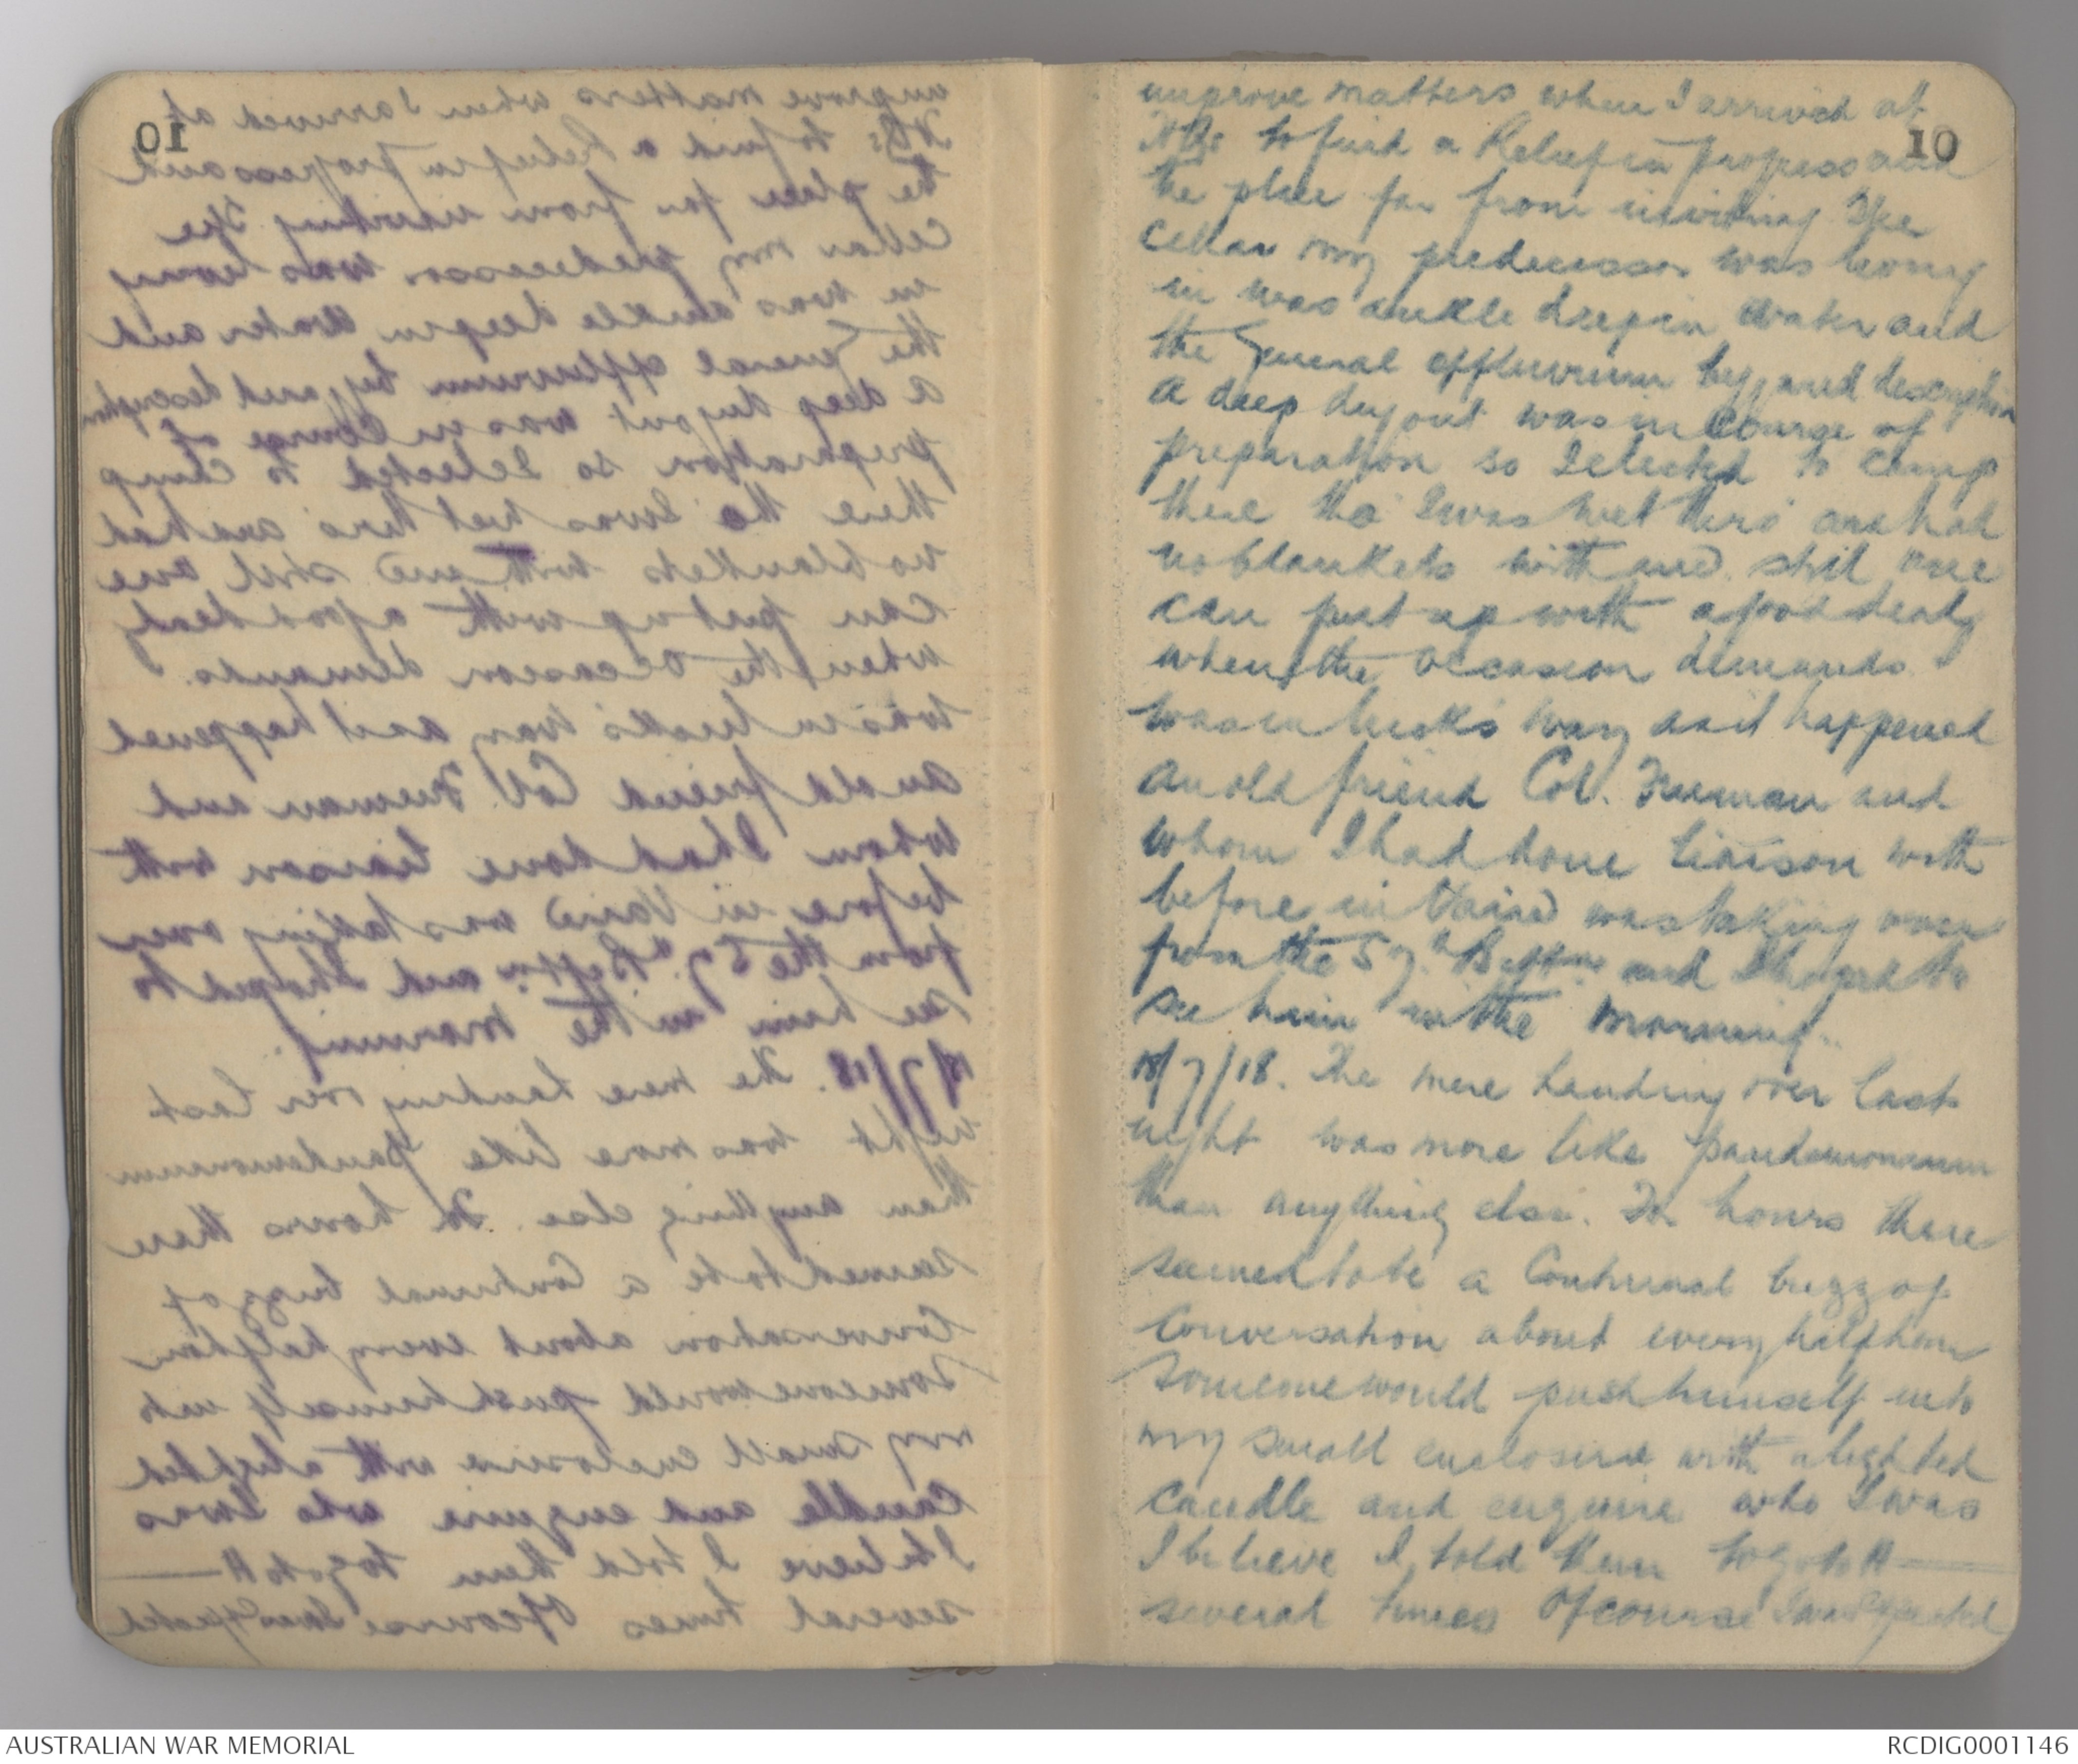 10
improve matters when I arrived at
HQs to find a Relief in progress and
the place far from inviting The
cellar my predecessor was living
in was ankle deep in water and
the general effluvium beyond description
A deep dugout was in course of
preparation so I elected to camp
there tho I was wet thro' and had
no blankets with me still one
can put up with a good deal
when the occasion demands.
was in luck's way as it happened
an old friend Col. Freeman and
whom I had done liaison with
before in was taking over
from the 57th Battn. and I hoped to
see him in the morning.
18/7/18. The mere handing over last
night was more like pandemonium
than anything else. For hours there
seemed to be a continual buzz of
conversation about every half hour
someone would push himself into
my small enclosure with a lighted
candle and enquire who I was
I believe I told them to go to H——
several times Of course I was expected
AUSTRALIAN WAR MEMORIAL
RCDIG0001146